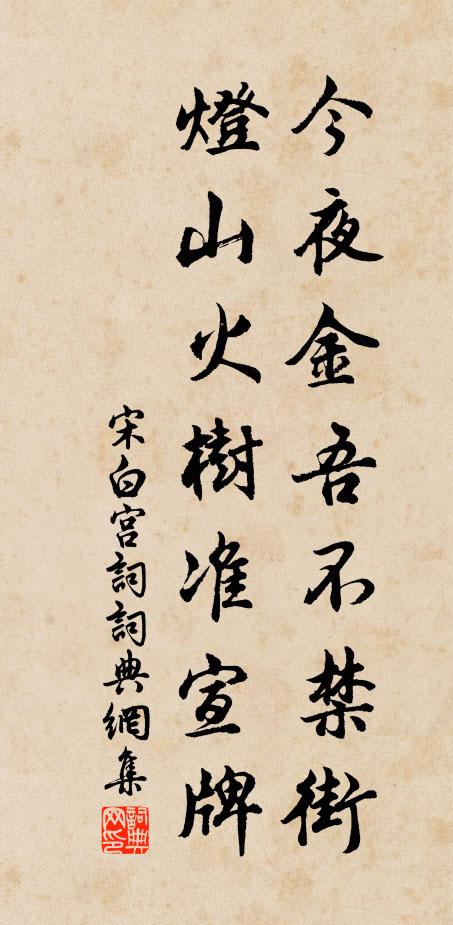 今夜金吾不禁街
燈山火樹准宣牌
宋白宮詞詞典網集
詞典网印